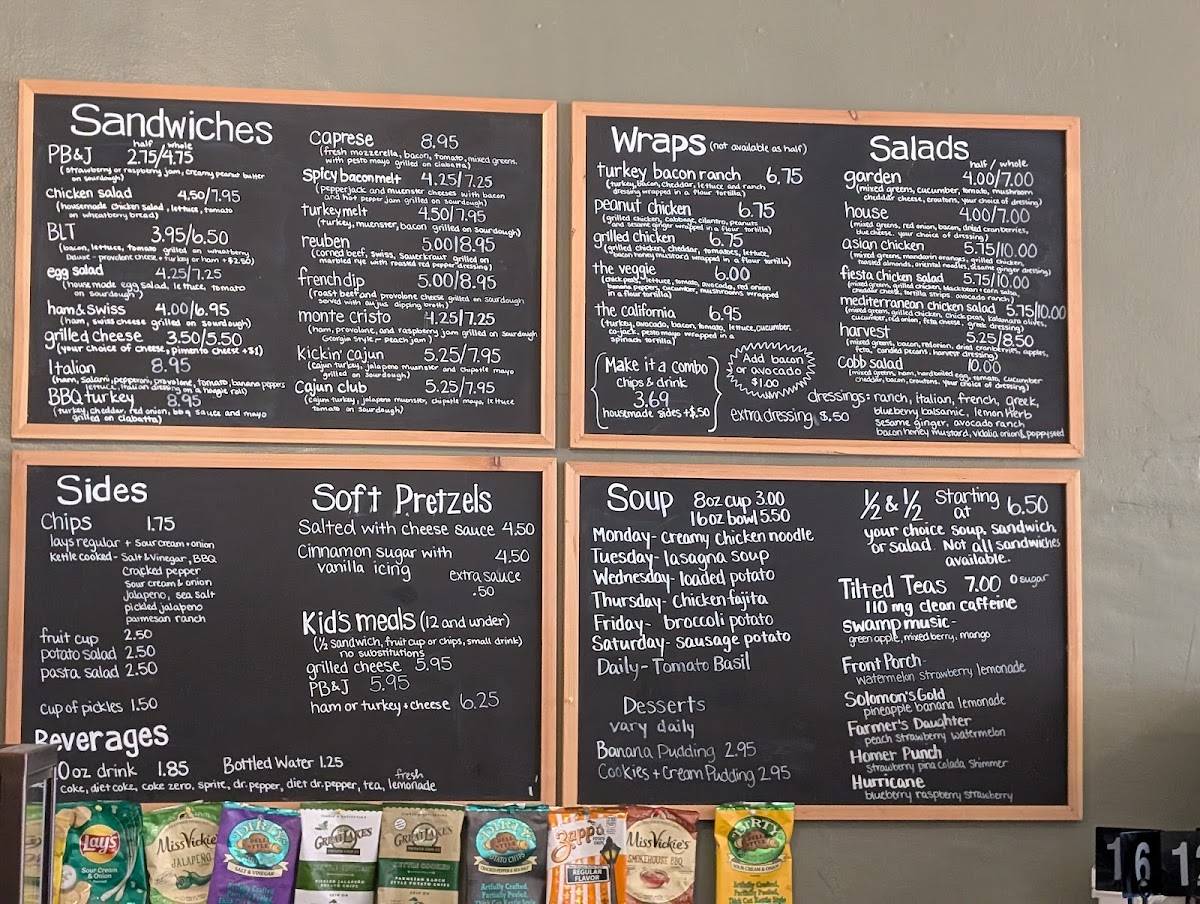 Sandwiches
half whole
PB&J 2.75/4.75
(strawberry or raspberry jam, creamy peanut butter
on sourdough)
chicken salad 4.50/7.95
(housemade chicken salad, lettuce, tomato
on wheatberry bread)
BLT 3.95/6.50
(bacon, lettuce, tomato grilled on wheatberry
Deluxe - provolone cheese + turkey or ham +$2.50)
egg salad 4.25/7.25
(housemade egg salad, lettuce, tomato
on sourdough)
ham & swiss 4.00/6.95
(ham, swiss cheese grilled on sourdough)
grilled cheese 3.50/5.50
(your choice of cheese, pimento cheese +$1)
Italian 8.95
(ham, salami, pepperoni, provolone, tomato, banana peppers
lettuce, italian dressing on a hoagie roll)
BBQ turkey 8.95
(turkey, cheddar, red onion, bbq sauce and mayo
grilled on ciabatta)
caprese 8.95
(fresh mozzerella, bacon, tomato, mixed greens,
with pesto mayo grilled on ciabatta)
spicy bacon melt 4.25/7.25
(pepperjack and muenster cheeses with bacon
and hot pepper jam grilled on sourdough)
turkey melt 4.50/7.95
(turkey, muenster, bacon grilled on sourdough)
reuben 5.00/8.95
(corned beef, swiss, sauerkraut grilled on
marbled rye with roasted red pepper dressing)
french dip 5.00/8.95
(roast beef and provolone cheese grilled on sourdough
served with au jus dipping broth)
monte cristo 4.25/7.25
(ham, provolone, and raspberry jam grilled on sourdough
Georgia style - peach jam)
kickin' cajun 5.25/7.95
(cajun turkey, jalapeno muenster and chipotle mayo
grilled on sourdough)
cajun club 5.25/7.95
(cajun turkey, jalapeno muenster, chipotle mayo, lettuce
tomato on sourdough)
Wraps (not available as half)
turkey bacon ranch 6.75
(turkey, bacon, cheddar, lettuce and ranch
dressing wrapped in a flour tortilla)
peanut chicken 6.75
(grilled chicken, cabbage, cilantro, peanuts
and sesame ginger wrapped in a flour tortilla)
grilled chicken 6.75
(grilled chicken, cheddar, tomatoes, lettuce,
bacon honey mustard wrapped in a flour tortilla)
the veggie 6.00
(chick peas, lettuce, tomato, avocado, red onion
banana peppers, cucumber, mushrooms wrapped
in a flour tortilla)
the california 6.95
(turkey, avocado, bacon, tomato, lettuce, cucumber,
co-jack, pesto mayo wrapped in a
spinach tortilla)
Make it a combo
chips & drink
3.69
housemade sides +$.50
Add bacon
or avocado
$1.00
extra dressing $.50
Salads
half / whole
garden 4.00/7.00
(mixed greens, cucumber, tomato, mushroom
cheddar cheese, croutons, your choice of dressing)
house 4.00/7.00
(mixed greens, red onion, bacon, dried cranberries,
blue cheese, your choice of dressing)
asian chicken 5.75/10.00
(mixed greens, mandarin oranges, grilled chicken,
toasted almonds, oriental noodles, sesame ginger dressing)
fiesta chicken salad 5.75/10.00
(mixed greens, grilled chicken, blackbean + corn salsa,
cheddar cheese, tortilla strips, avocado ranch)
mediterranean chicken salad 5.75/10.00
(mixed greens, grilled chicken, chick peas, kalamata olives,
cucumber, red onion, feta cheese, greek dressing)
harvest 5.25/8.50
(mixed greens, bacon, red onion, dried cranberries, apples,
feta, candied pecans, harvest dressing)
cobb salad 10.00
(mixed greens, ham, hard boiled egg, tomato, cucumber
cheddar, bacon, croutons, your choice of dressing)
dressings: ranch, italian, french, greek,
blueberry balsamic, lemon herb
sesame ginger, avocado ranch
bacon honey mustard, vidalia onion & poppyseed
Sides
Chips 1.75
lays regular + sour cream + onion
kettle cooked - salt & vinegar, BBQ
cracked pepper
sour cream & onion
jalapeno, sea salt
pickled jalapeno
parmesan ranch
fruit cup 2.50
potato salad 2.50
pasta salad 2.50
cup of pickles 1.50
Beverages
0 oz drink 1.85 Bottled Water 1.25
coke, diet coke, coke zero, sprite, dr. pepper, diet dr. pepper, tea, fresh lemonade
Soft Pretzels
Salted with cheese sauce 4.50
Cinnamon sugar with 4.50
vanilla icing
extra sauce
.50
Kid's meals (12 and under)
(1/2 sandwich, fruit cup or chips, small drink)
no substitutions
grilled cheese 5.95
PB&J 5.95
ham or turkey + cheese 6.25
Soup 8oz cup 3.00
16 oz bowl 5.50
Monday - creamy chicken noodle
Tuesday - lasagna soup
Wednesday - loaded potato
Thursday - chicken fajita
Friday - broccoli potato
Saturday - sausage potato
Daily - Tomato Basil
Desserts
vary daily
Banana Pudding 2.95
Cookies + Cream Pudding 2.95
1/2 & 1/2 Starting at 6.50
your choice soup, sandwich,
or salad. Not all sandwiches
available.
Tilted Teas 7.00 0 sugar
110 mg clean caffeine
swamp music -
green apple, mixed berry, mango
Front Porch -
watermelon strawberry lemonade
Solomon's Gold
pineapple banana lemonade
Farmer's Daughter
peach strawberry watermelon
Homer Punch
strawberry pina colada shimmer
Hurricane
blueberry raspberry strawberry
Lay's
Sour Cream
& Onion
Miss Vickie's
JALAPEÑO
DIRTY
SALT & VINEGAR
GREAT LAKES
GREAT LAKES
PARMESAN RANCH
STYLE POTATO CHIPS
DIRTY
POTATO CHIPS
Zapp's
REGULAR
FLAVOR
Miss Vickie's
SMOKEHOUSE BBQ
DIRTY
16 1